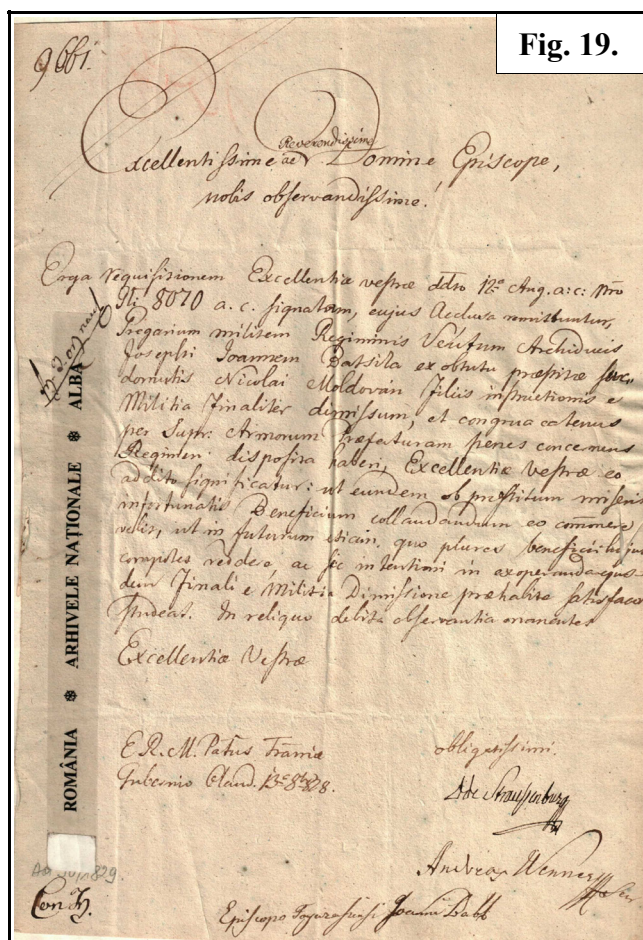 Fig. 19.
9661.
Reverendissime
Excellentissime ac Domine Episcope,
nobis observandissime!
Erga requisitionem Excellentiæ vestræ ddto 12ª Aug. a: c: Nro
8070 a. c. signatam, cujus Acclusa remittuntur,
Gregarium militem Regiminis Velitum Archiducis
Josephi Joannem Batsila ex obtutu præstitæ
domutis Nicolai Moldován Filiis instructionis e
Militia finaliter dimissum, et congrua eatenus
per Supr. Armorum Præfecturam penes concernens
Regimen disposita haberi, Excellentiæ vestræ eo
addito significatur: ut eundem ob præstitum miseris
infortunatis Beneficium collaudandum eo
velit, ut in futurum etiam, quo plures beneficii hujus
compotes reddere, ac sic intentioni in exoperanda
dem Finali e Militia Dimissione præhabitæ
studeat. In reliquo debita observantia
Excellentiæ Vestræ
E. R. M. Pattus Tranniæ
Gubernio Claud. 828.
obligatissimi.
Andreas
Episcopo Fogarasiensi Joanni Babb
ROMÂNIA ❄ ARHIVELE NAȚIONALE ❄ ALBA